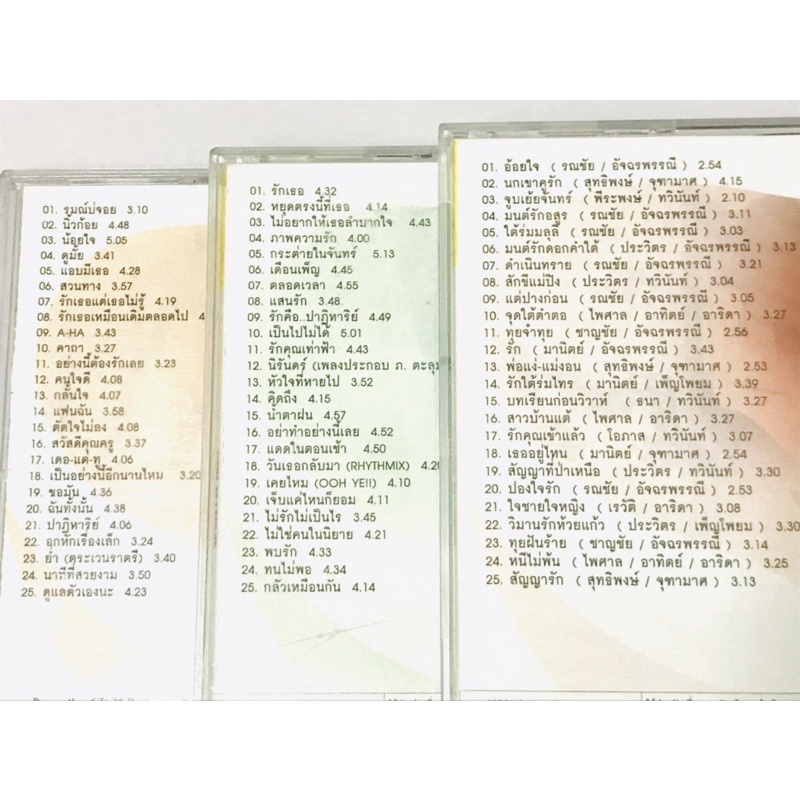 01. รมณ์บ่จอย 3.10
02. นิ้วก้อย 4.48
03. น้อยใจ 5.05
04. ดูมั้ย 3.41
05. แอบมีเธอ 4.28
06. สวนทาง 3.57
07. รักเธอแต่เธอไม่รู้ 4.19
08. รักเธอเหมือนเดิมตลอดไป 4
09. A-HA 3.43
10. คาถา 3.27
11. อย่างนี้ต้องรักเลย 3.23
12. คนใจดี 4.08
13. กลั้นใจ 4.07
14. แฟนฉัน 3.58
15. ตัดใจไม่ลง 4.08
16. สวัสดีคุณครู 3.37
17. เดอ-แต-ทู 4.06
18. เป็นอย่างนี้อีกนานไหม 3.20
19. ขอมัน 4.36
20. ฉันทั้งนั้น 4.38
21. ปาฏิหาริย์ 4.06
22. อุกหักเรื่องเล็ก 3.24
23. ย้ำ (ตระเวนราตรี) 3.40
24. นาทีที่สวยงาม 3.50
25. ดูแลตัวเองนะ 4.23
01. รักเธอ 4.32
02. หยุดตรงนี้ที่เธอ 4.14
03. ไม่อยากให้เธอลำบากใจ 4.43
04. ภาพความรัก 4.00
05. กระต่ายในจันทร์ 5.13
06. เดือนเพ็ญ 4.45
07. ตลอดเวลา 4.55
08. แสนรัก 3.48
09. รักคือ..ปาฏิหาริย์ 4.49
10. เป็นไปไม่ได้ 5.01
11. รักคุณเท่าฟ้า 4.43
12. นิรันดร์ (เพลงประกอบ ภ. ตะลุม
13. หัวใจที่หายไป 3.52
14. คิดถึง 4.15
15. น้ำตาฝน 4.57
16. อย่าทำอย่างนี้เลย 4.52
17. แดดในตอนเช้า 4.50
18. วันเธอกลับมา (RHYTHMIX) 4.20
19. เคยไหม (OOH YE!!) 4.10
20. เจ็บแค่ไหนก็ยอม 4.11
21. ไม่รักไม่เป็นไร 3.45
22. ไม่ใช่คนในนิยาย 4.21
23. พบรัก 4.33
24. ทนไม่พอ 4.34
25. กลัวเหมือนกัน 4.14
01. อ้อยใจ ( รณชัย / อัจฉรพรรณี ) 2.54
02. นกเขาคูรัก ( สุทธิพงษ์ / จุฑามาศ ) 4.15
03. จูบเย้ยจันทร์ ( พีระพงษ์ / ทวินันท์ ) 2.10
04. มนต์รักอสูร ( รณชัย / อัจฉรพรรณี ) 3.11
05. ใต้ร่มมลุลี ( รณชัย / อัจฉรพรรณี ) 3.03
06. มนต์รักดอกคำใต้ ( ประวิตร / อัจฉรพรรณี ) 3.13
07. ดำเนินทราย ( รณชัย / อัจฉรพรรณี ) 3.21
08. สักขีแม่ปิง ( ประวิตร / ทวินันท์ ) 3.04
09. แต่ปางก่อน ( รณชัย / อัจฉรพรรณี ) 3.05
10. จุดใต้ตำตอ ( ไพศาล / อาทิตย์ / อาริดา ) 3.27
11. ทุยจ๋าทุย ( ชาญชัย / อัจฉรพรรณี ) 2.56
12. รัก ( มานิตย์ / อัจฉรพรรณี ) 3.43
13. พ่อแง่-แม่งอน ( สุทธิพงษ์ / จุฑามาศ ) 2.53
14. รักใต้ร่มไทร ( มานิตย์ / เพ็ญโพยม ) 3.39
15. บทเรียนก่อนวิวาห์ ( ธนา / ทวินันท์ ) 3.27
16. สาวบ้านแต้ ( ไพศาล / อาริดา ) 3.27
17. รักคุณเข้าแล้ว ( โอภาส / ทวินันท์ ) 3.07
18. เธออยู่ไหน ( มานิตย์ / จุฑามาศ ) 2.54
19. สัญญาที่ป่าเหนือ ( ประวิตร / ทวินันท์ ) 3.30
20. ปองใจรัก ( รณชัย / อัจฉรพรรณี ) 2.53
21. ใจชายใจหญิง ( เรวัติ / อาริดา ) 3.08
22. วิมานรักห้วยแก้ว ( ประวิตร / เพ็ญโพยม ) 3.30
23. ทุยฝันร้าย ( ชาญชัย / อัจฉรพรรณี ) 3.14
24. หนีไม่พ้น ( ไพศาล / อาทิตย์ / อาริดา ) 3.25
25. สัญญารัก ( สุทธิพงษ์ / จุฑามาศ ) 3.13